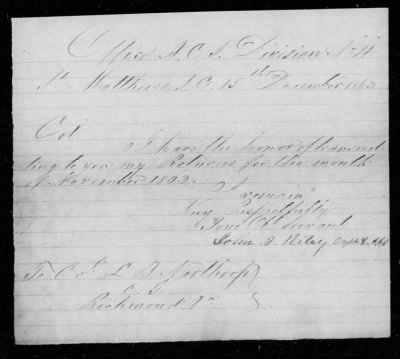 Office A.C.S. Division No 4
St Matthews S.C. 15th December 1863
Col.
I have the honor of transmit
ting to you my Returns for the month
of November 1863.
I remain
Very Respectfully
Your Obt Servant
John A. Riley Capt &
To Col L. B. Northrop
C. G.
Richmond Va